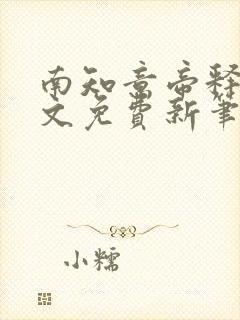 南知意帝释
文免费新笔
小糯